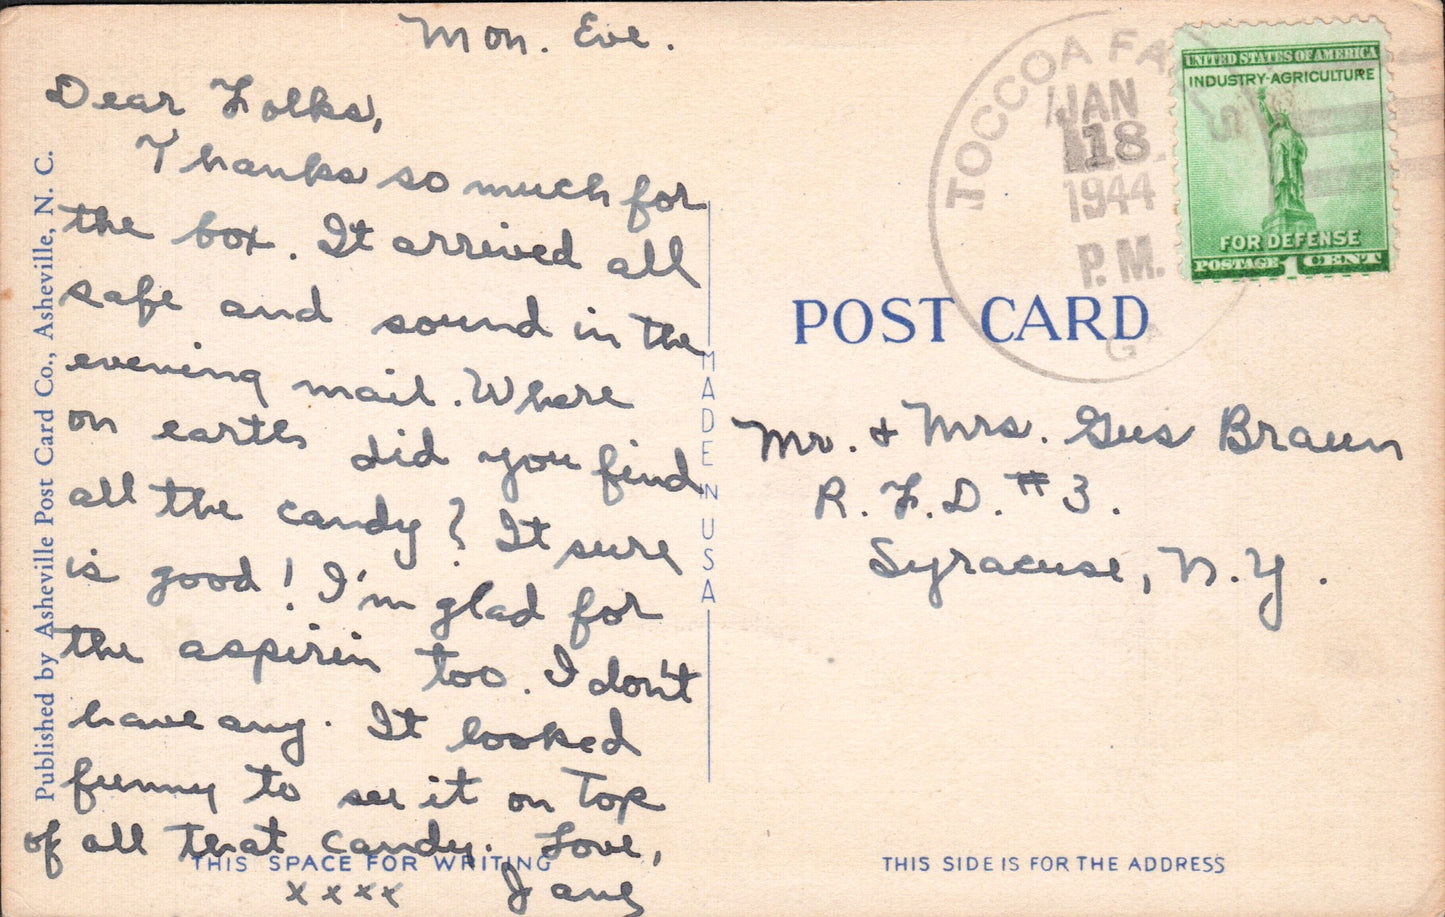 Mon. Eve.
Dear Folks,
Thanks so much for
the box. It arrived all
safe and sound in the
evening mail. Where
on earth did you find
all the candy? It sure
is good! I'm glad for
the aspirin too. I don't
have any. It looked
funny to see it on top
of all that candy. Love,
xxxx Jane
Published by Asheville Post Card Co., Asheville, N. C.
THIS SPACE FOR WRITING
MADE IN USA
TOCCOA FALLS
JAN
18
1944
P.M.
GA
UNITED STATES OF AMERICA
INDUSTRY-AGRICULTURE
FOR DEFENSE
POSTAGE 1 CENT
POST CARD
Mr. & Mrs. Gus Braun
R.F.D. #3.
Syracuse, N.Y.
THIS SIDE IS FOR THE ADDRESS